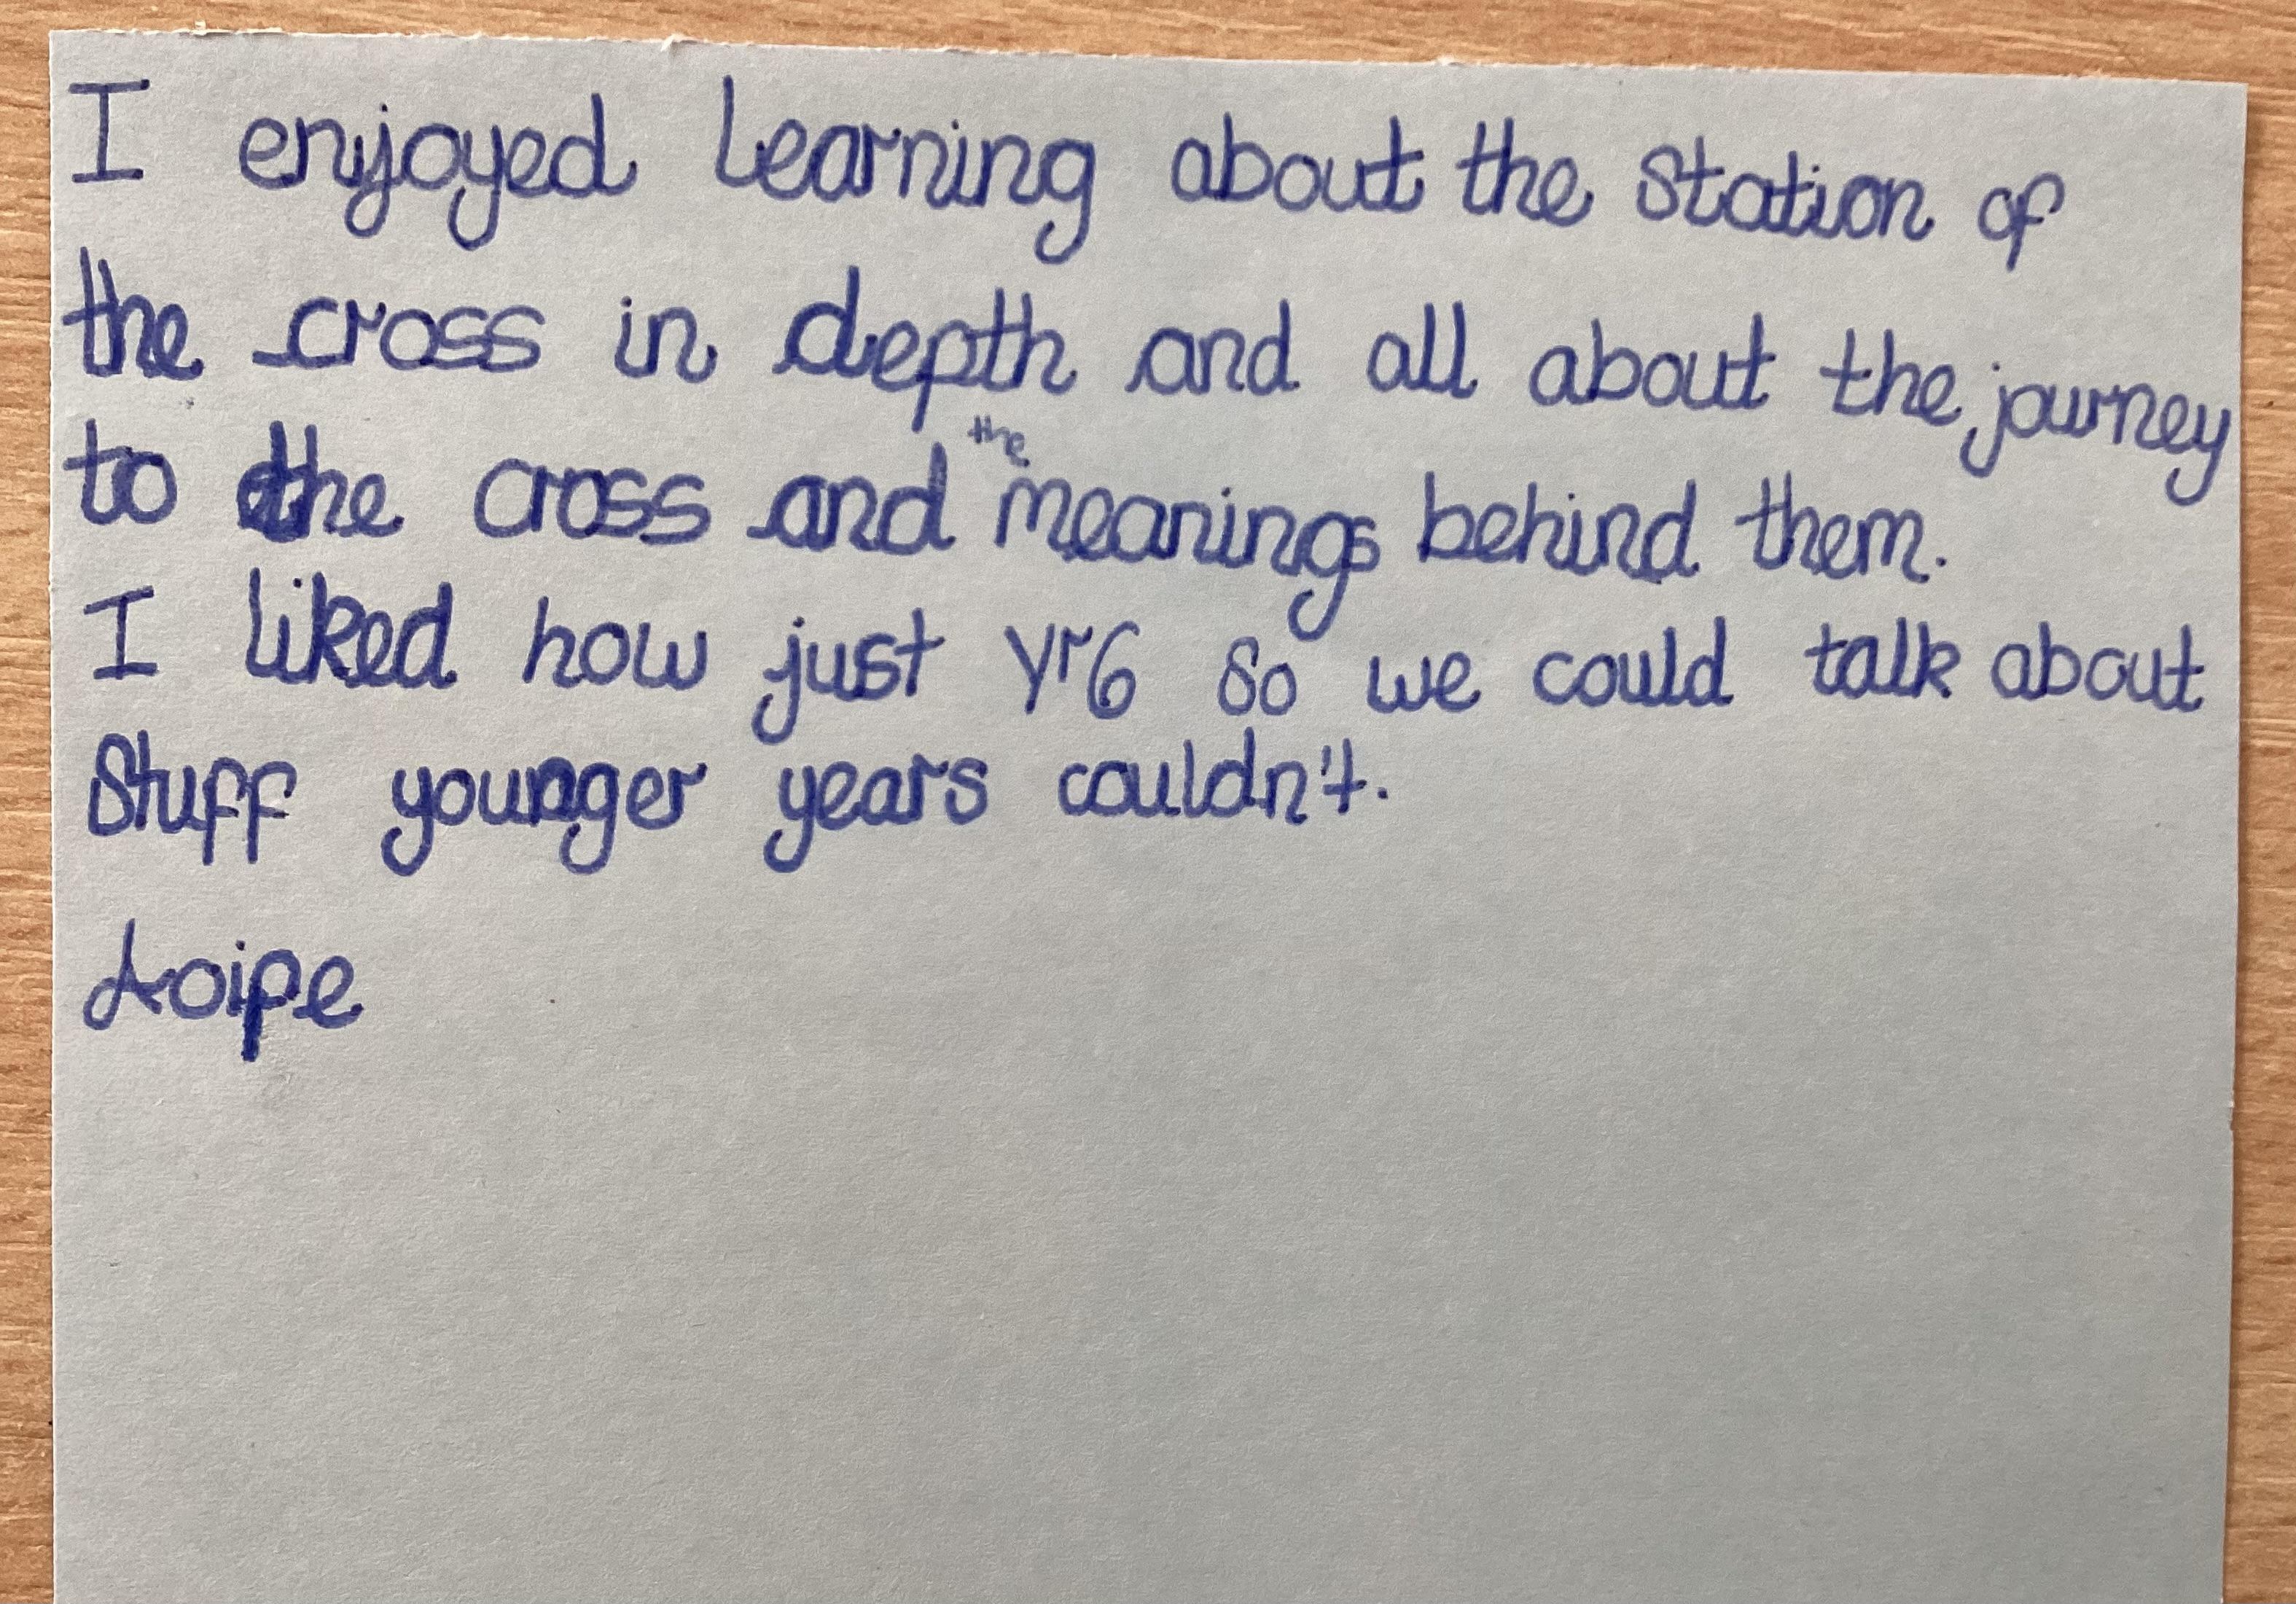 I enjoyed learning about the station of
the cross in depth and all about the journey
to the cross and the meanings behind them.
I liked how just yr6 so we could talk about
Stuff younger years couldn't.